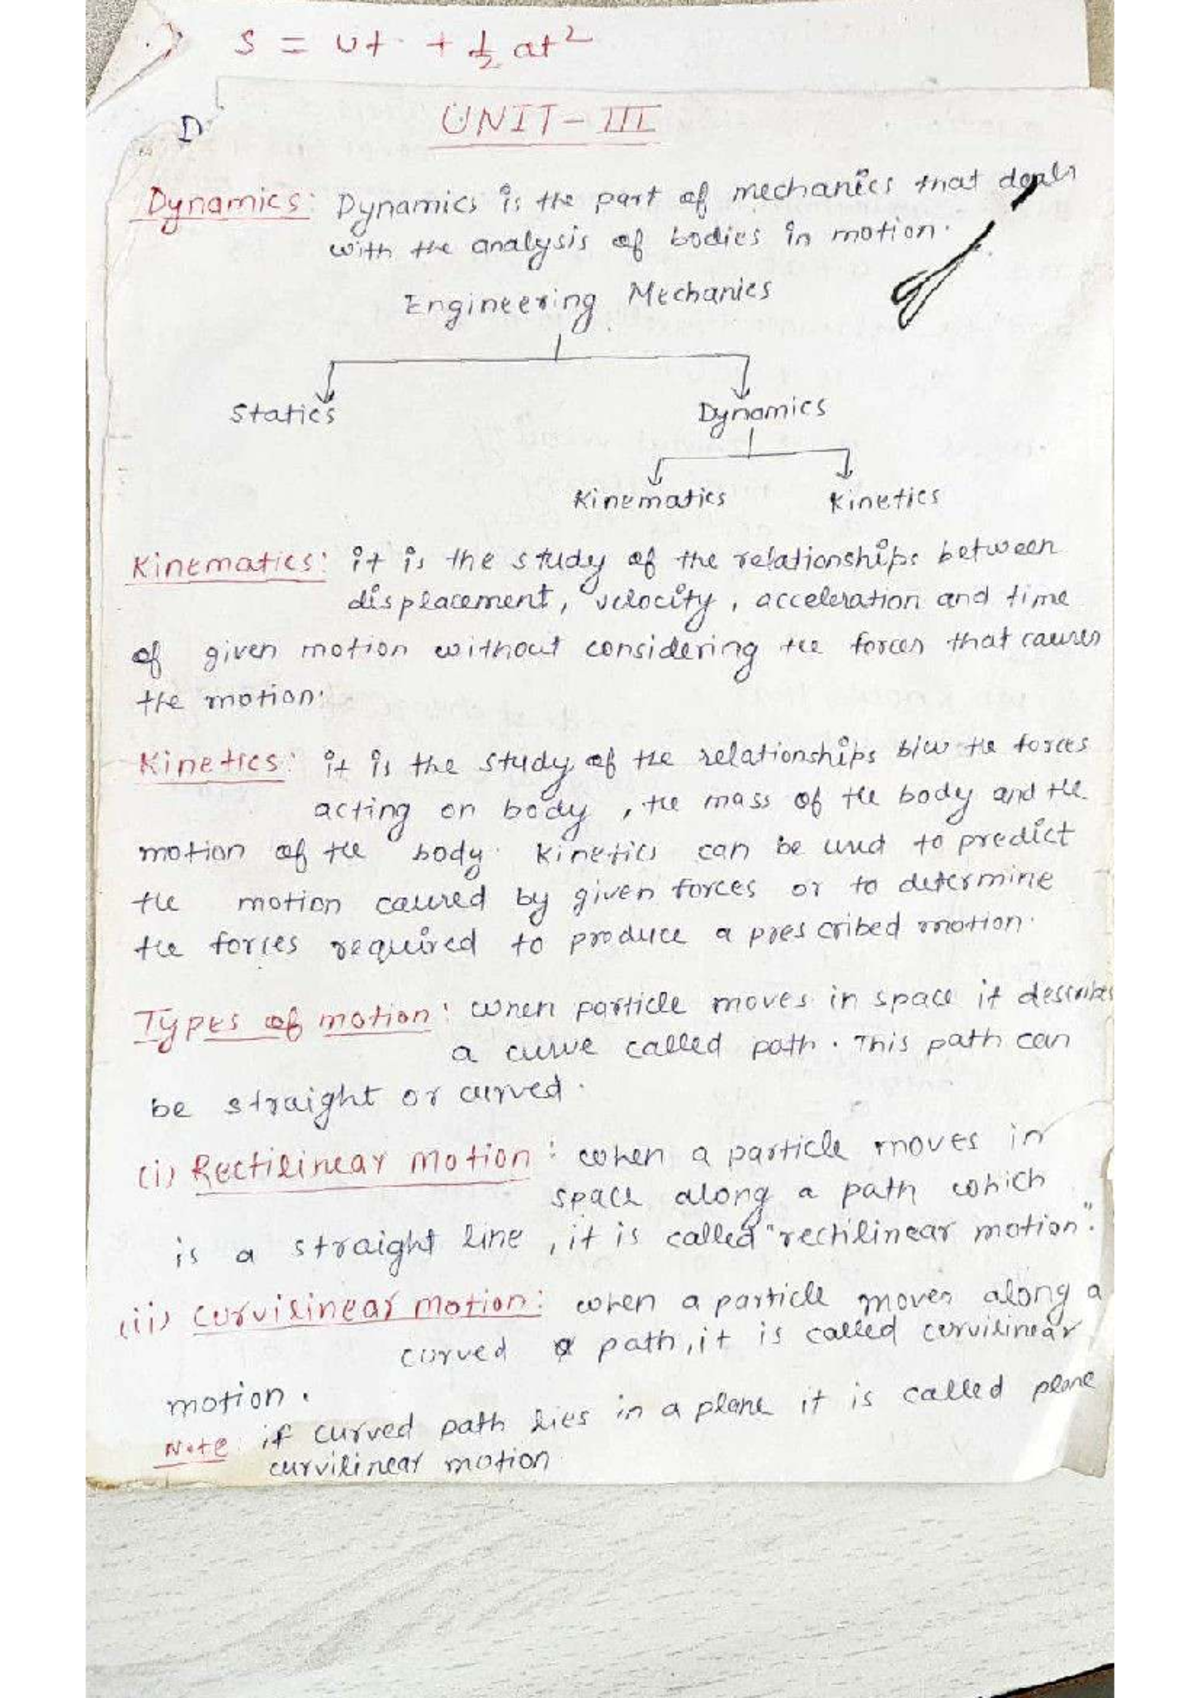 S = ut + 1/2 at²
D
UNIT-III
Dynamics: Dynamics is the part of mechanics that deals
with the analysis of bodies in motion.
Engineering Mechanics
Statics Dynamics
Kinematics Kinetics
Kinematics: it is the study of the relationships between
displacement, velocity, acceleration and time
of given motion without considering the forces that causes
the motion.
Kinetics: it is the study of the relationships b/w the forces
acting on body, the mass of the body and the
motion of the body. Kinetics can be used to predict
the motion caused by given forces or to determine
the forces required to produce a prescribed motion.
Types of motion: when particle moves in space it describes
a curve called path. This path can
be straight or curved.
(i) Rectilinear motion: when a particle moves in
space along a path which
is a straight line, it is called "rectilinear motion".
(ii) curvilinear motion: when a particle moves along a
curved path, it is called curvilinear
motion.
Note: if curved path lies in a plane it is called plane
curvilinear motion